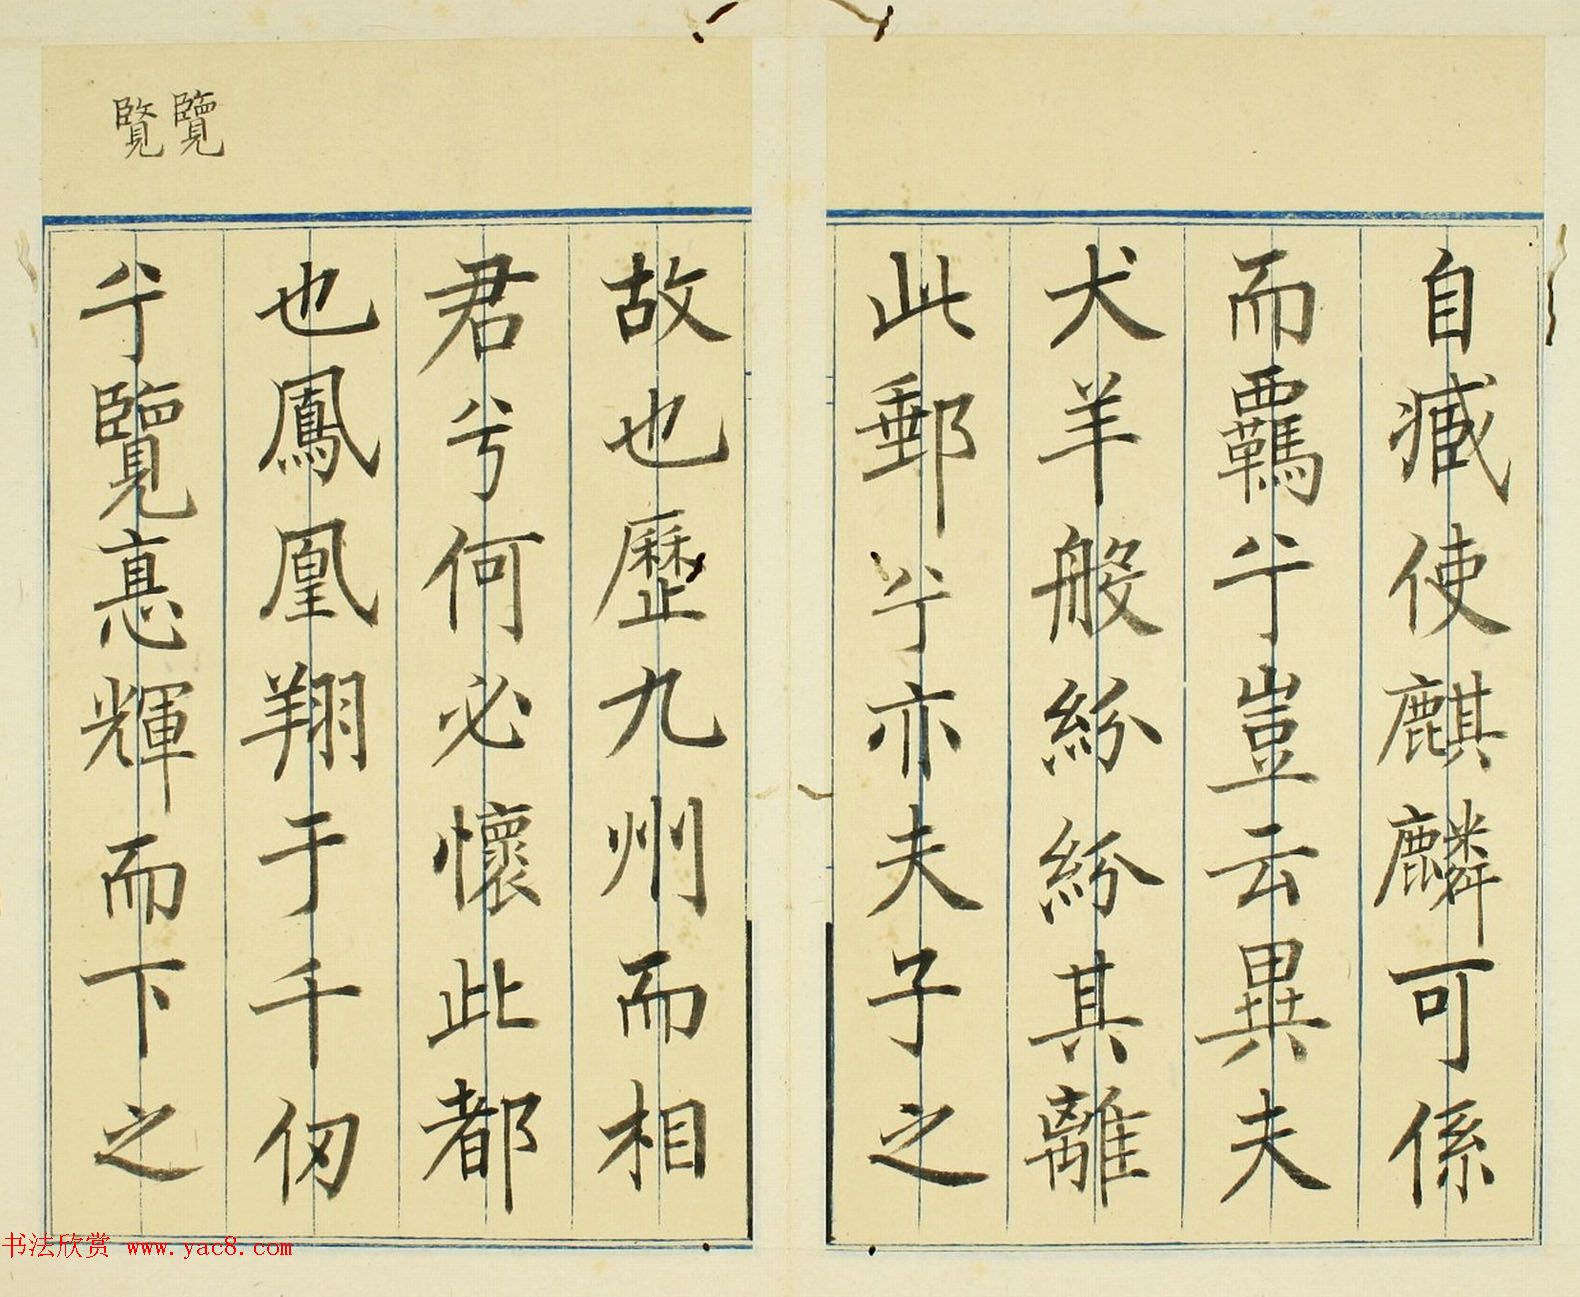 自臧使麒麟可係
而羈兮豈云異夫
犬羊般紛紛其離
此郵兮亦夫子之
故也歷九州而相
君兮何必懷此都
也鳳凰翔于千仞
兮覽悳輝而下之
覽覧
书法欣赏 www.yac8.com